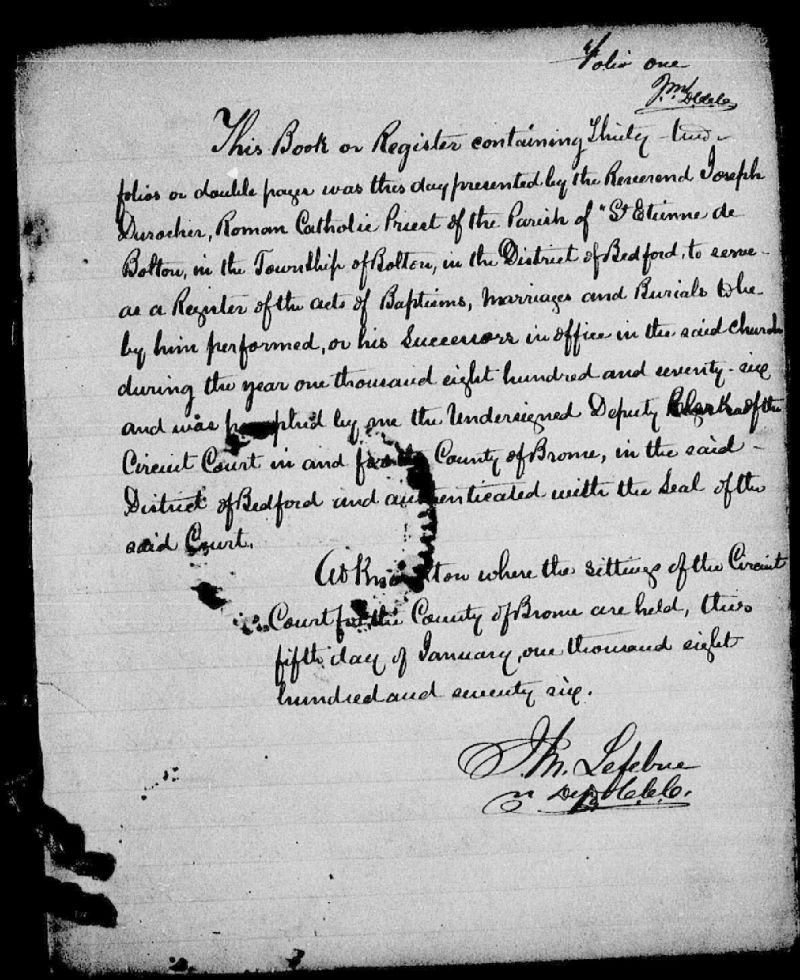 Folio one
This Book or Register containing Thirty-two
folios or double pages was this day presented by the Reverend Joseph
Durocher, Roman Catholic Priest of the Parish of "St Etienne de
Bolton, in the Township of Bolton, in the District of Bedford, to serve
as a Register of the acts of Baptisms, Marriages and Burials to be
by him performed, or his Successors in office in the said church
during the year one thousand eight hundred and seventy-six
and was by me the Undersigned Deputy Clerk of the
Circuit Court in and for the County of Brome, in the said
District of Bedford and authenticated with the Seal of the
said Court.
At Knowlton where the sittings of the Circuit
Court for the County of Brome are held, this
fifth day of January, one thousand eight
hundred and seventy six.
Lefebvre
Dep